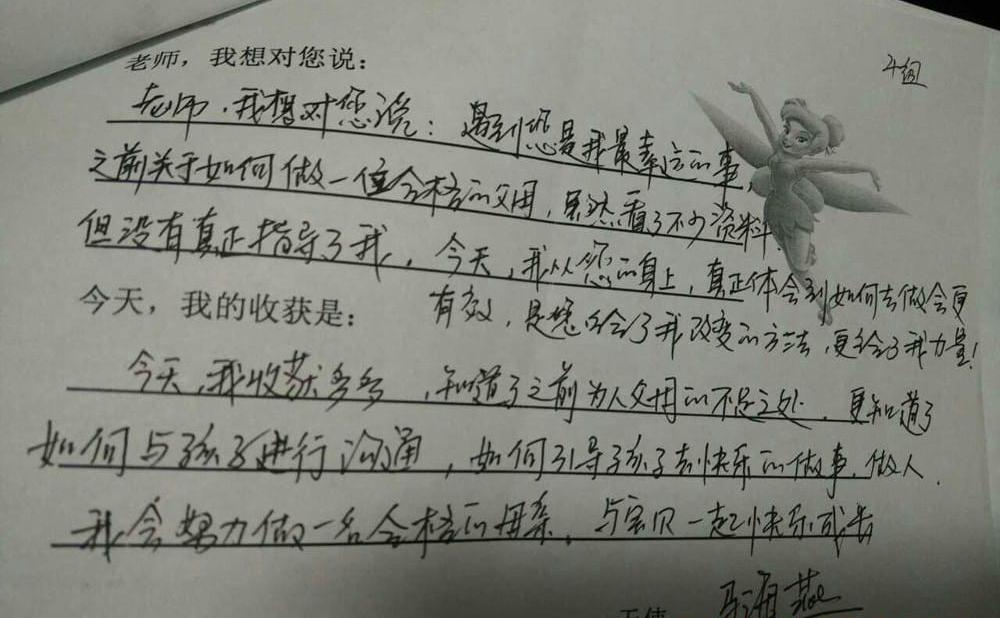 老师，我想对您说：
4组
老师，我想对您说：遇到您是我最幸运的事，
之前关于如何做一位合格的父母，虽然看了不少资料，
但没有真正指导了我，今天，我从您的身上，真正体会到如何去做会更
有效，是您给了我改变的方法，更给了我力量！
今天，我的收获是：
今天，我收获多多，知道了之前为人父母的不足之处，更知道了
如何与孩子进行沟通，如何引导孩子去快乐的做事，做人，
我会努力做一名合格的母亲，与宝贝一起快乐成长
海燕